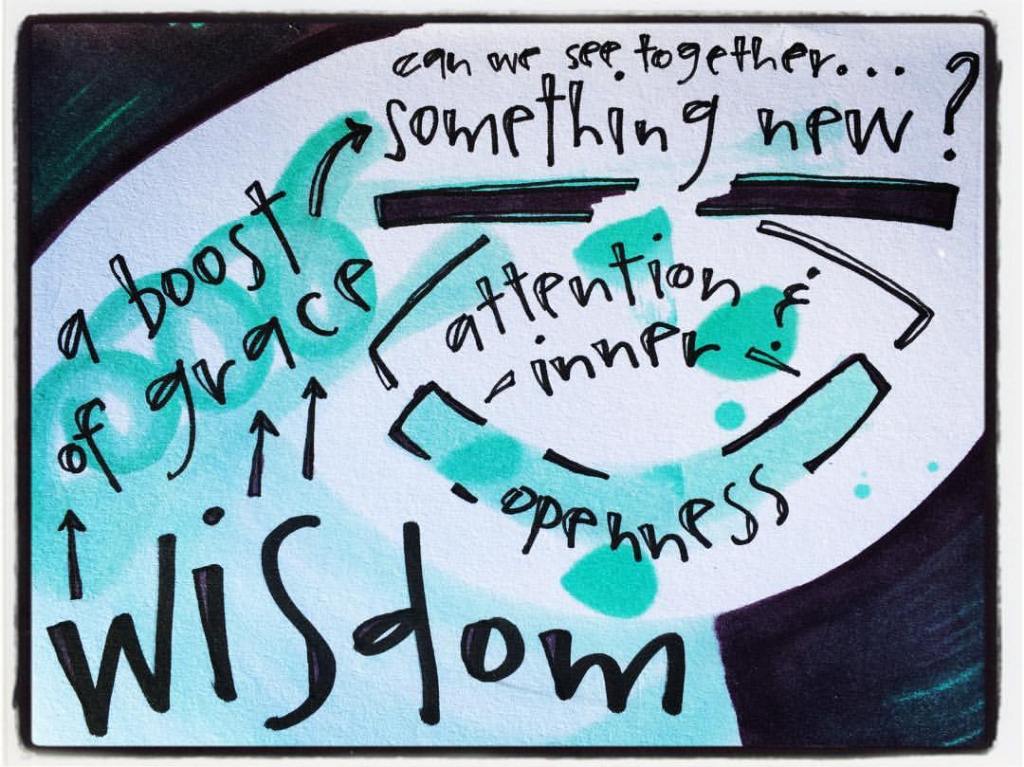 can we see together...
something new?
a boost
of grace
attention &
- inner -
openness
wisdom